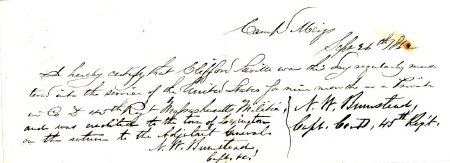 Camp Meigs
Sept 26th 186
I hereby certify that Clifford Saville was this day regularly mus
tered into the service of the United States for nine months as a Private
in Co D 45th Regt Massachusetts Militia,
and was credited to the town of Lexington
on the return to the Adjutant General
N. W. Bumstead,
Capt. &c.
N. W. Bumstead,
Capt. Co. D, 45th Regt.